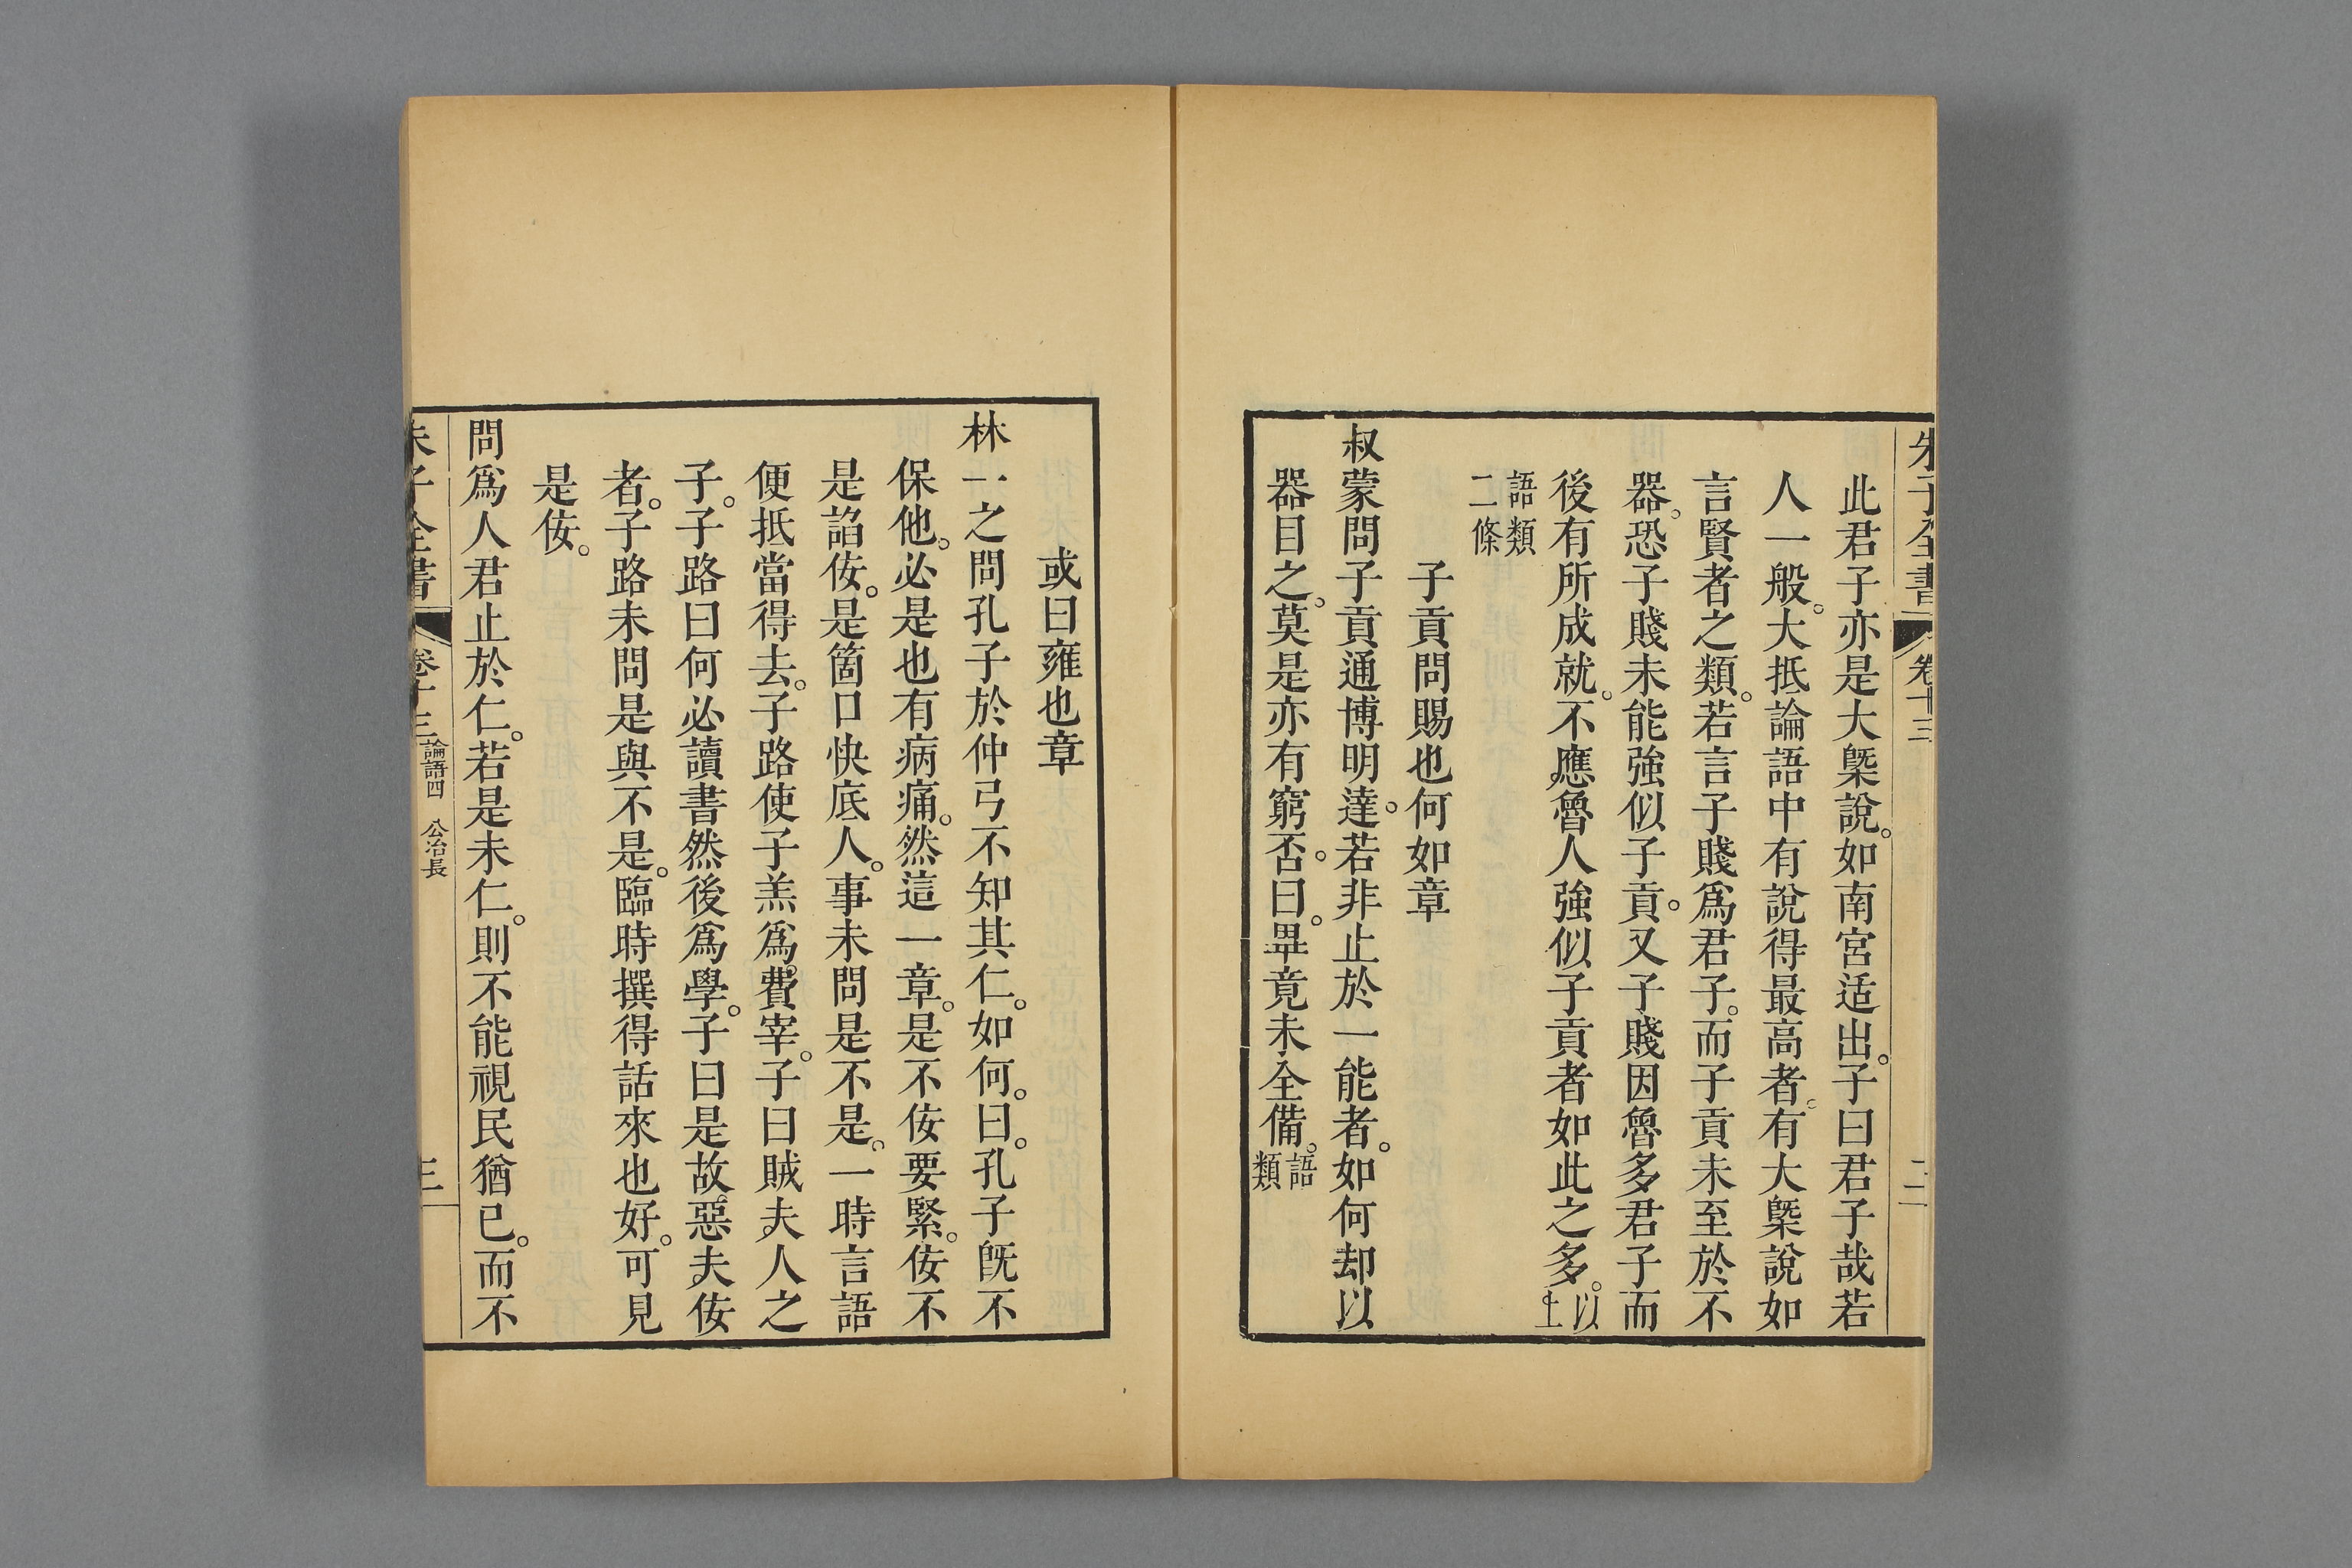 朱子全書 卷十三 二
此君子亦是大槩說。如南宮适出。子曰君子哉若
人一般。大抵論語中有說得最高者。有大槩說如
言賢者之類。若言子賤爲君子。而子貢未至於不
器。恐子賤未能強似子貢。又子賤因魯多君子而
後有所成就。不應魯人強似子貢者如此之多。以上
語類二條
子貢問賜也何如章
叔蒙問子貢通博明達。若非止於一能者。如何却以
器目之。莫是亦有窮否。曰。畢竟未全備。語類
或曰雍也章
林一之問孔子於仲弓不知其仁。如何。曰。孔子旣不
保他。必是也有病痛。然這一章。是不侫要緊。侫不
是諂侫。是箇口快底人。事未問是不是。一時言語
便抵當得去。子路使子羔爲費宰。子曰賊夫人之
子。子路曰何必讀書然後爲學。子曰是故惡夫侫
者。子路未問是與不是。臨時撰得話來也好。可見
是侫。
問爲人君止於仁。若是未仁。則不能視民猶已。而不
朱子全書 卷十三 論語四 公冶長 三